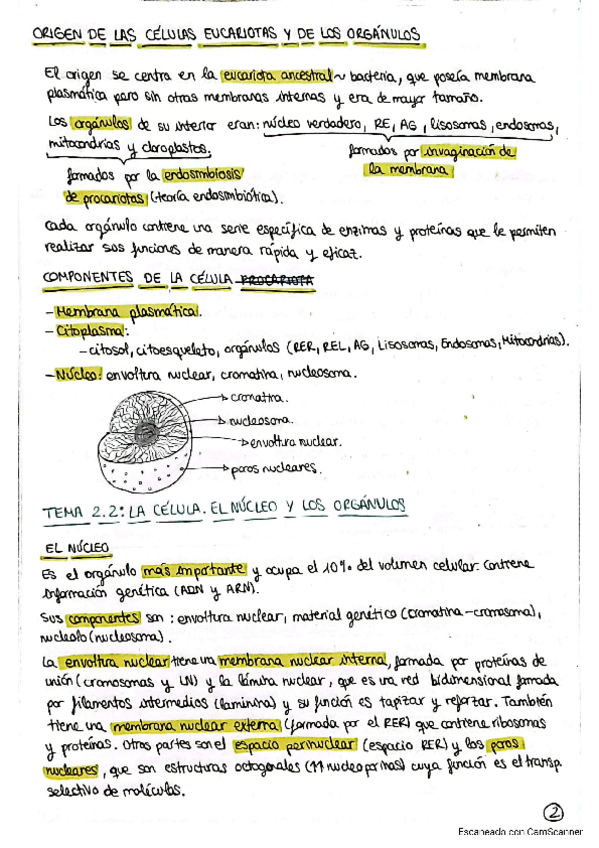 ORIGEN DE LAS CÉLULAS EUCARIOTAS Y DE LOS ORGÁNULOS
El origen se centra en la eucariota ancestral ~ bacteria, que poseía membrana
plasmática pero sin otras membranas internas y era de mayor tamaño.
Los orgánulos de su interior eran: núcleo verdadero, RE, AG, lisosomas, endosomas,
mitocondrias y cloroplastos.
formados por invaginación de
la membrana
formados por la endosimbiosis
de procariotas (teoría endosimbiótica).
Cada orgánulo contiene una serie específica de enzimas y proteínas que le permiten
realizar sus funciones de manera rápida y eficaz.
COMPONENTES DE LA CÉLULA PROCARIOTA
- Membrana plasmática.
- Citoplasma:
- citosol, citoesqueleto, orgánulos (RER, REL, AG, Lisosomas, Endosomas, Mitocondrias).
- Núcleo: envoltura nuclear, cromatina, nucleosoma.
cromatina.
nucleosoma.
envoltura nuclear.
poros nucleares.
TEMA 2.2: LA CÉLULA. EL NÚCLEO Y LOS ORGÁNULOS
EL NÚCLEO
Es el orgánulo más importante y ocupa el 10% del volumen celular. Contiene
información genética (ADN y ARN).
Sus componentes son: envoltura nuclear, material genético (cromatina-cromosoma),
nucleolo (nucleosoma).
La envoltura nuclear tiene una membrana nuclear interna, formada por proteínas de
unión (cromosomas y LN) y la lámina nuclear, que es una red bidimensional formada
por filamentos intermedios (laminina) y su función es tapizar y reforzar. También
tiene una membrana nuclear externa (formada por el RER) que contiene ribosomas
y proteínas. Otras partes son el espacio perinuclear (espacio RER) y los poros
nucleares, que son estructuras octogonales (↑↑ nucleoporinas) cuya función es el transp.
selectivo de moléculas.
2
Escaneado con CamScanner